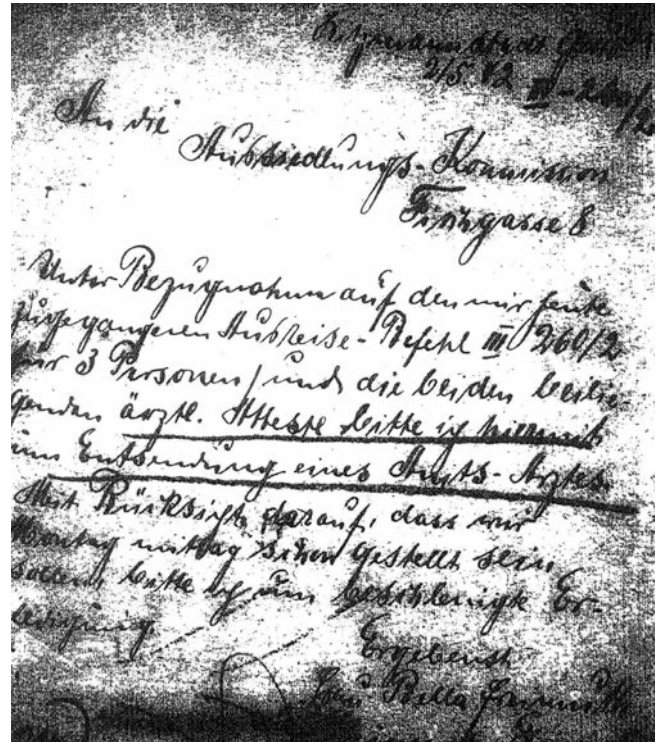 2/5. 42 III - 260/2
An die
Aussiedlungs-Kommission
Fischgasse 8
Unter Bezugnahme auf den mir heute
zugegangenen Ausreise-Befehl III 260/2
für 3 Personen / und die beiden beilie-
genden ärztl. Atteste bitte ich hiermit
um Entsendung eines Amts-Arztes.
Mit Rücksicht darauf, dass wir
Montag mittag schon gestellt sein
sollen, bitte ich um beschleunigte Er-
ledigung.
Ergebenst
Frau Bella